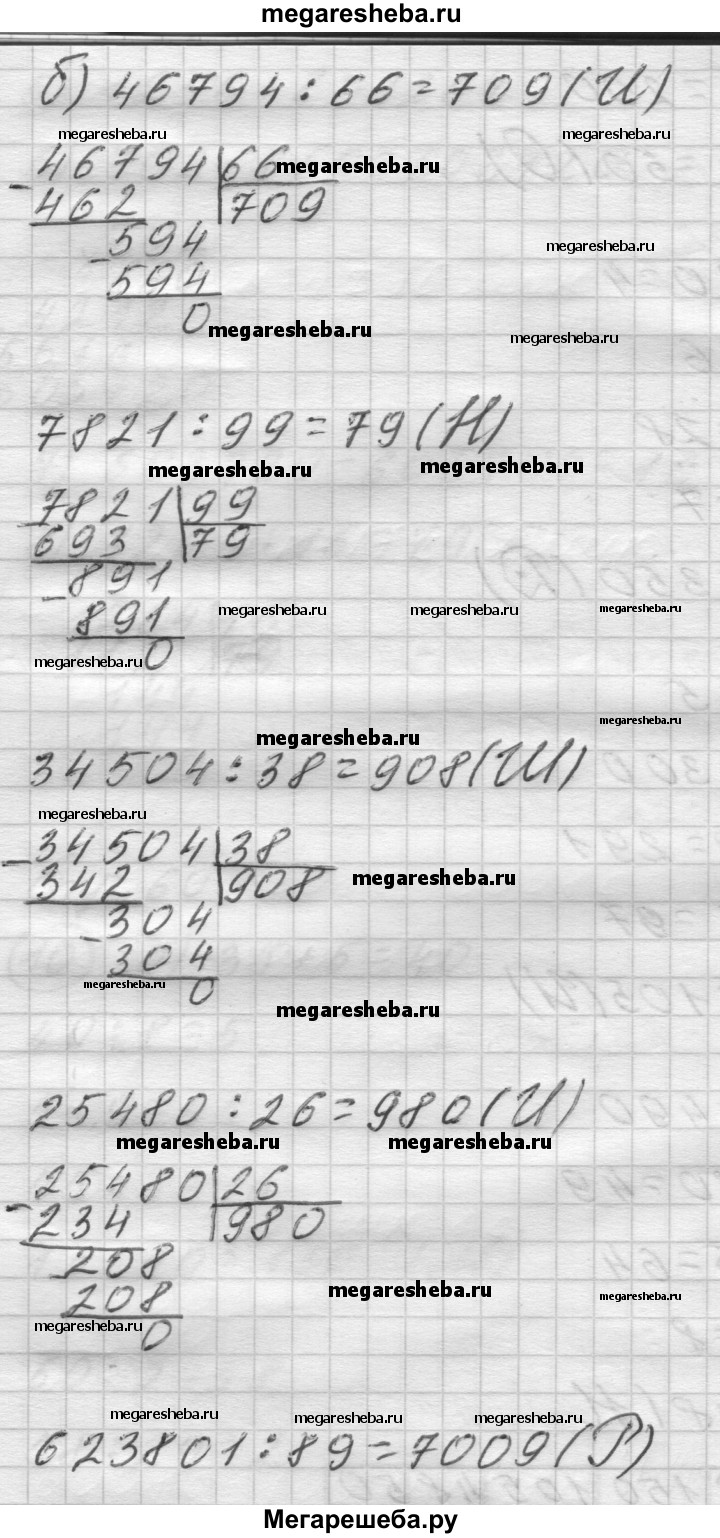 megaresheba.ru
б) 46794 : 66 = 709 (И)
megaresheba.ru megaresheba.ru
46794 66 megaresheba.ru
- 462 709
594 megaresheba.ru
- 594
0 megaresheba.ru megaresheba.ru
7821 : 99 = 79 (Н)
megaresheba.ru megaresheba.ru
7821 99
- 693 79
891
- 891 megaresheba.ru megaresheba.ru megaresheba.ru
megaresheba.ru 0
megaresheba.ru
megaresheba.ru
34504 : 38 = 908 (Ш)
megaresheba.ru
- 34504 38
342 908 megaresheba.ru
- 304
304
megaresheba.ru 0
megaresheba.ru
25480 : 26 = 980 (И)
megaresheba.ru megaresheba.ru
25480 26
- 234 980
- 208
208 megaresheba.ru megaresheba.ru
megaresheba.ru 0
megaresheba.ru megaresheba.ru megaresheba.ru
623801 : 89 = 7009 (Р)
Мегарешеба.ру